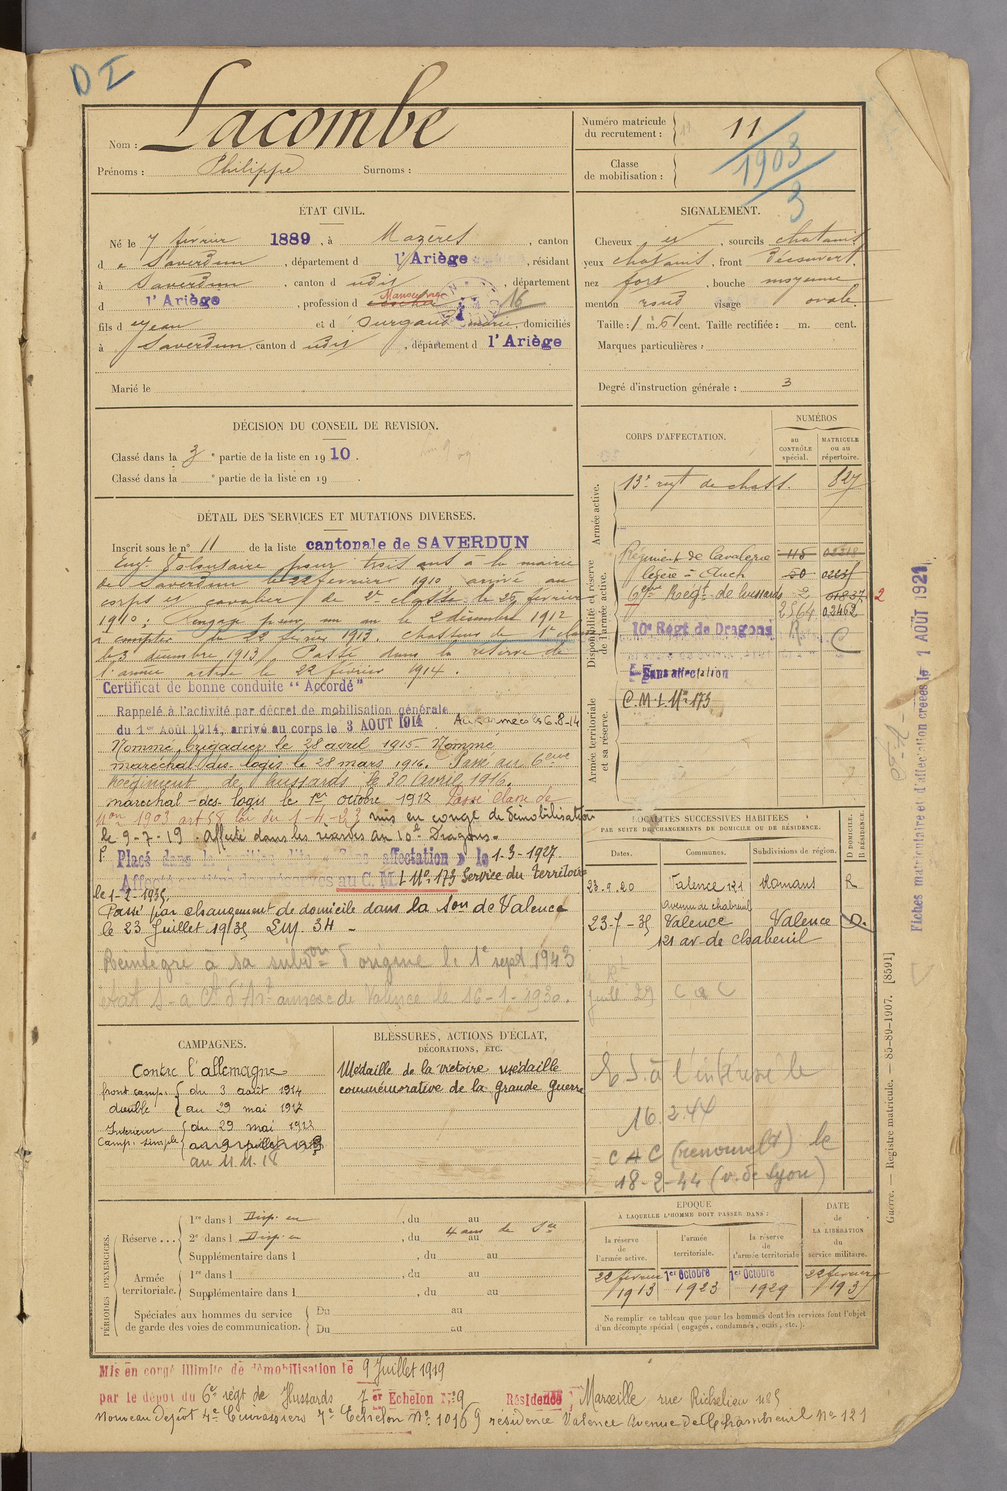 D I
Nom : Lacombe
Prénoms : Philippe Surnoms :
Numéro matricule
du recrutement : 11
Classe
de mobilisation : 1903
3
ÉTAT CIVIL.
Né le 7 février 1889, à Mazères, canton
d e Saverdun, département d l'Ariège, résidant
à Saverdun, canton d udit, département
d l'Ariège, profession d Manoeuvre 16
fils d e Jean et d domiciliés
à Saverdun canton d udit, département d l'Ariège
Marié le
SIGNALEMENT.
Cheveux et, sourcils chatains
yeux chatains, front découvert
nez fort, bouche moyenne
menton rond visage ovale
Taille : 1 m. 61 cent. Taille rectifiée : m. cent.
Marques particulières :
Degré d'instruction générale : 3
DÉCISION DU CONSEIL DE REVISION.
Classé dans la 3e partie de la liste en 1910.
Classé dans la e partie de la liste en 19 .
DÉTAIL DES SERVICES ET MUTATIONS DIVERSES.
Inscrit sous le n° 11 de la liste cantonale de SAVERDUN
Engt Volontaire pour trois ans à la mairie
de Saverdun le 22 février 1910, arrivé au
corps et cavalier de 2e classe le 25 février
1910; Rengagé pour un an le 2 décembre 1912
à compter du 22 février 1913. chasseur de 1e classe
le 3 décembre 1913. Passé dans la réserve de
l'armée active le 22 février 1914.
Certificat de bonne conduite "Accordé"
Rappelé à l'activité par décret de mobilisation générale
du 1er Août 1914, arrivé au corps le 3 AOUT 1914 Aux armées le 6-8-14
Nommé brigadier le 28 avril 1915. Nommé
maréchal des logis le 28 mars 1916. Passé au 6ème
Régiment de hussards le 30 Avril 1916.
maréchal-des-logis le 1er octobre 1917 Passé classe de
mon 1903 art 58 loi du 1-4-23 mis en congé de démobilisation
le 9-7-19. Affecté dans les réserves au 10e Dragons.
Placé dans la position dite "Sans affectation" le 1-3-1927
Affecté au titre des réserves au C.M.L No 173 Service du territoire
le 1-2-1935.
Passé par changement de domicile dans la Son de Valence
le 23 Juillet 1935 34 -
Réintégré à sa subdon d'origine le 1e sept 1943
CORPS D'AFFECTATION.
NUMÉROS
au
CONTRÔLE
spécial.
MATRICULE
ou au
répertoire.
Armée active.
13e regt de chass. 827
Disponibilité et réserve
de l'armée active.
Régiment de Cavalerie 115
légère à Auch 50
6e Regt de hussards 2
2864 02462
10e Régt de Dragons C
Sans affectation
Armée territoriale
et sa réserve.
C.M.L No 173
LOCALITÉS SUCCESSIVES HABITÉES
PAR SUITE DE CHANGEMENTS DE DOMICILE OU DE RÉSIDENCE.
Dates. Communes. Subdivisions de région. D DOMICILE. R RÉSIDENCE.
23.9.20 Valence 121 Romans R
Avenue de chabeuil
23-7-35 Valence Valence D.
121 av. de chabeuil
C a C
16.2.44
C A C (renouvelt) le
18-2-44 (v. de Lyon)
Fiches matriculaire et d'affectation créées le 1 AOUT 1921
Guerre. — Registre matricule. — 85-89-1907. [8591]
CAMPAGNES.
Contre l'allemagne
front camp. double { du 3 août 1914
au 29 mai 1917
Interieur Camp. simple { du 29 mai 1917
au 11.11.18
BLESSURES, ACTIONS D'ÉCLAT,
DÉCORATIONS, ETC.
Médaille de la victoire médaille
commémorative de la grande guerre
PÉRIODES D'EXERCICES.
Réserve ... 1re dans l Disp. en, du au
2e dans l Disp. en, du au
Supplémentaire dans l , du au
Armée
territoriale. 1re dans l , du au
Supplémentaire dans l , du au
Spéciales aux hommes du service
de garde des voies de communication. Du au
Du au
ÉPOQUE
À LAQUELLE L'HOMME DOIT PASSER DANS :
la réserve
de
l'armée active.
l'armée
territoriale.
la réserve
de
l'armée territoriale
DATE
de
LA LIBÉRATION
du
service militaire.
22 février 1913 1er Octobre 1923 1er Octobre 1929 22 février 193
Ne remplir ce tableau que pour les hommes dont les services font l'objet
d'un décompte spécial (engagés, condamnés, omis, etc.).
Mis en congé illimité de démobilisation le 9 Juillet 1919
par le dépôt du 6e régt de Hussards 7 er Echelon No 9 Résidence Marseille rue Richelieu
Nouveau dépôt 4e Cuirassiers 7e Echelon No résidence Valence Avenue de Chambreuil No 121